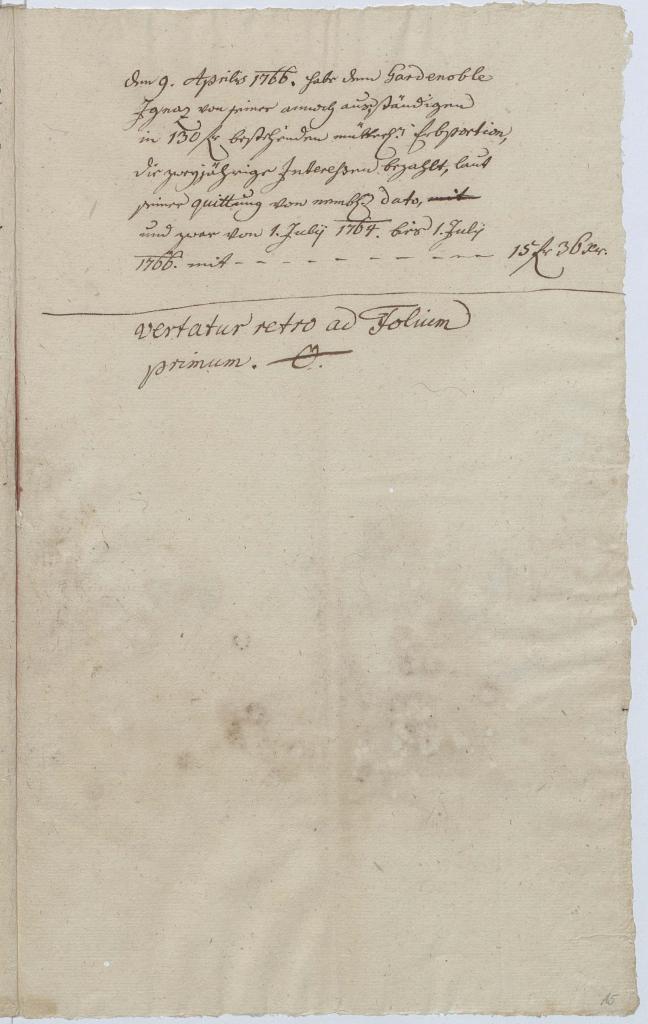 den 9. Aprilis 1766. habe dem Gardenoble
Ignaz von seiner annoch ausständigen
in 130 fr bestehenden mütterl: Erbportion,
die zweyjährige Interessen bezahlt, laut
seiner quittung von dato, mit
und zwar von 1. July 1764. bis 1. July
1766. mit - - - - - - - - - 15 fr 36 xr.
vertatur retro ad Folium
primum.
15